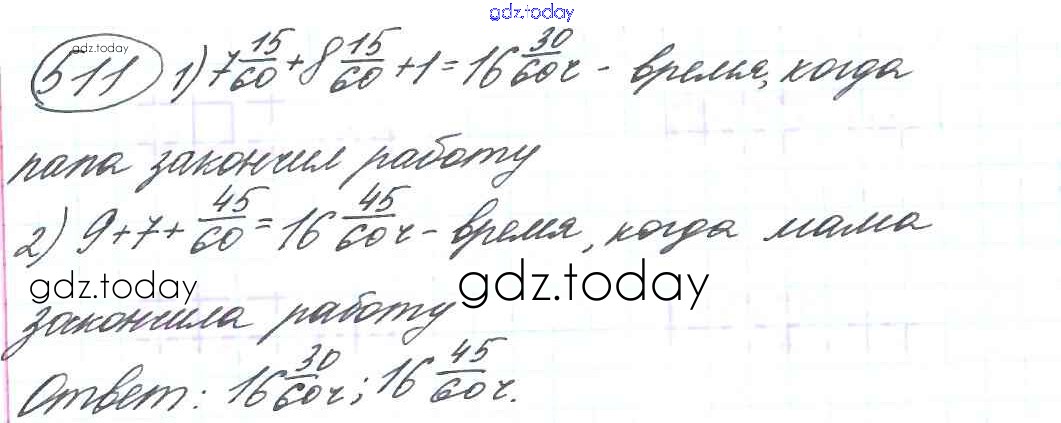 gdz.today
gdz.today
511 1) 7 15/60 + 8 15/60 + 1 = 16 30/60 ч - время, когда
папа закончил работу
2) 9 + 7 + 45/60 = 16 45/60 ч - время, когда мама
gdz.today gdz.today
закончила работу
Ответ: 16 30/60 ч; 16 45/60 ч.